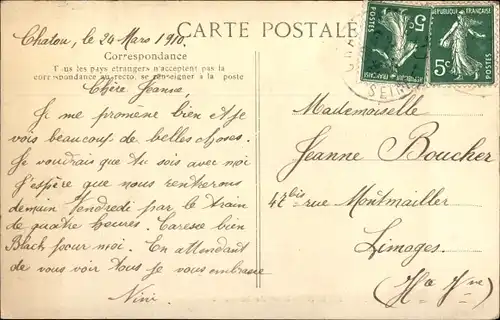 CARTE POSTALE
Chatou, le 24 Mars 1910.
Correspondance
Tous les pays étrangers n'acceptent pas la
correspondance au recto, se renseigner à la poste
Chère Jeanne,
Je me promène bien et je
vois beaucoup de belles choses.
Je voudrais que tu sois avec moi
J'espère que nous rentrerons
demain Vendredi par le train
de quatre heures. Caresse bien
Black pour moi. En attendant
de vous voir tous je vous embrasse
Nini
REPUBLIQUE FRANÇAISE
5c
POSTES
REPUBLIQUE FRANÇAISE
5c
POSTES
SEINE
Mademoiselle
Jeanne Boucher
42bis rue Montmailler
Limoges
(Hte Vne)